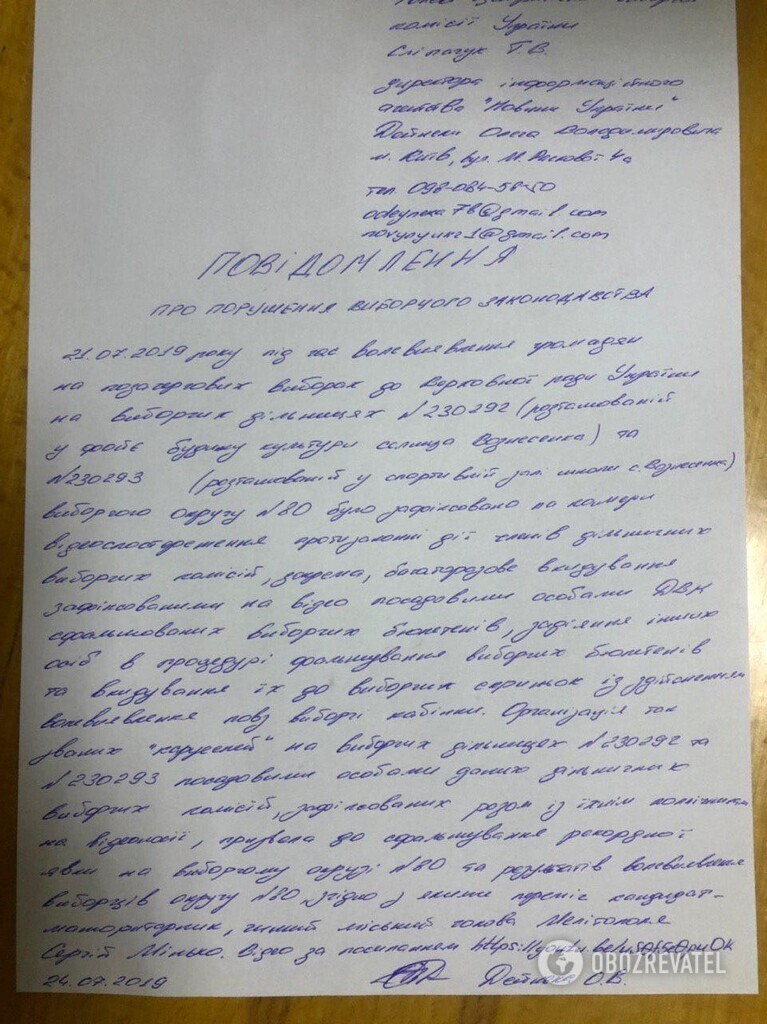 комісії України
Сліпачук Т.В.
директора інформаційного
агентства "Новини України"
Дейнеки Олега Володимировича
м. Київ, вул. М. Раскової 4а
тел. 098-084-58-50
odeyneka78@gmail.com
novynyukr1@gmail.com
ПОВІДОМЛЕННЯ
ПРО ПОРУШЕННЯ ВИБОРЧОГО ЗАКОНОДАВСТВА
21.07.2019 року під час волевиявлення громадян
на позачергових виборах до Верховної ради України
на виборчих дільницях №230292 (розташованій
у фойє будинку культури селища Вознесенка) та
№230293 (розташованій у спортивній залі школи с. Вознесенка)
виборчого округу №80 було зафіксовано на камери
відеоспостереження протизаконні дії членів дільничних
виборчих комісій, зокрема, багаторазове вкидування
зафіксованими на відео посадовими особами ДВК
сфальшованих виборчих бюлетенів, задіяння інших
осіб в процедурі фальшування виборчих бюлетенів
та вкидування їх до виборчих скриньок із здійсненням
волевиявлення повз виборчі кабінки. Організація так
званих "каруселей" на виборчих дільницях №230292 та
№230293 посадовими особами даних дільничних
виборчих комісій, зафіксованих разом із їхнім
на відеоносії, призвела до сфальшування рекордної
явки на виборчому окрузі №80 та результатів волевиявлення
виборців округу №80, згідно з якими переміг кандидат-
мажоритарник, чинний міський голова Мелітополя
Сергій Мінько. Відео за посиланням
24.07.2019 Дейнека О.В.
OBOZREVATEL